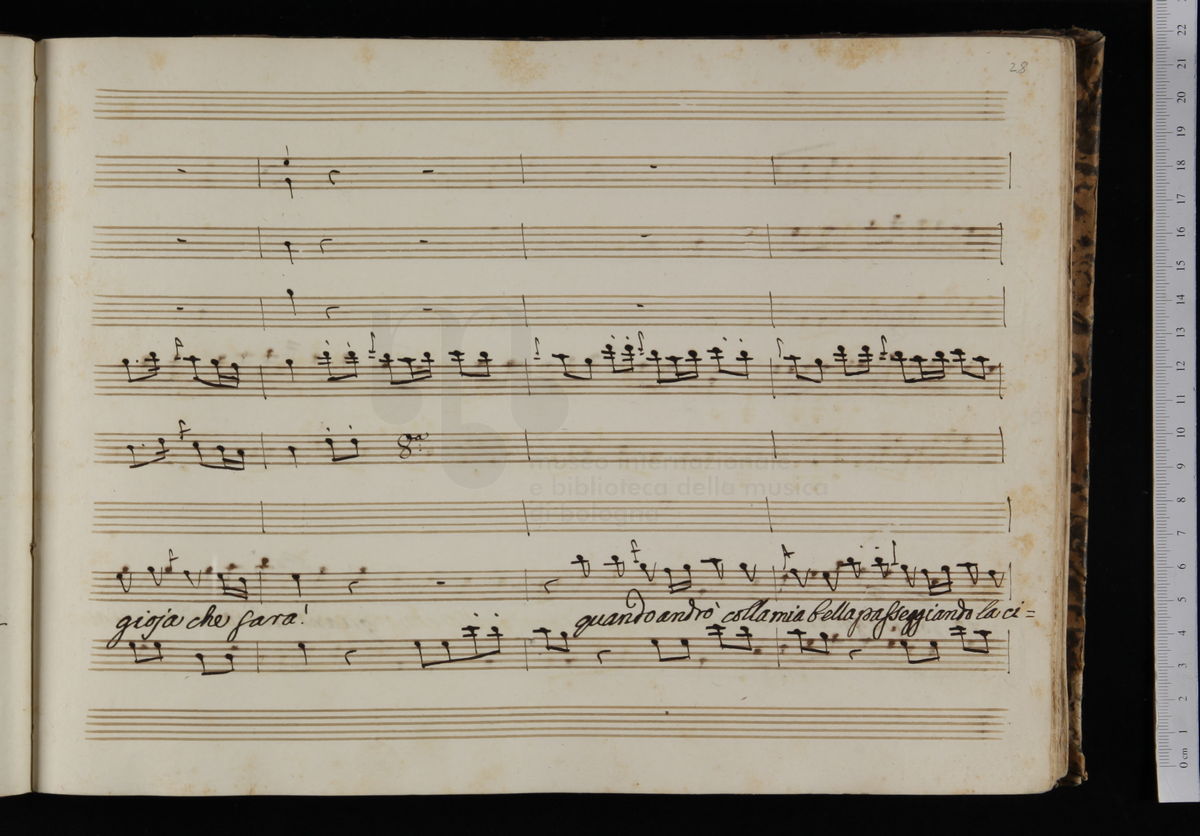 28
8.va
museo internazionale
e biblioteca della musica
bologna
gioja che sarà!
quando andrò colla mia bella passeggiando la ci=
22
21
20
19
18
17
16
15
14
13
12
11
10
9
8
7
6
5
4
3
2
1
0 cm